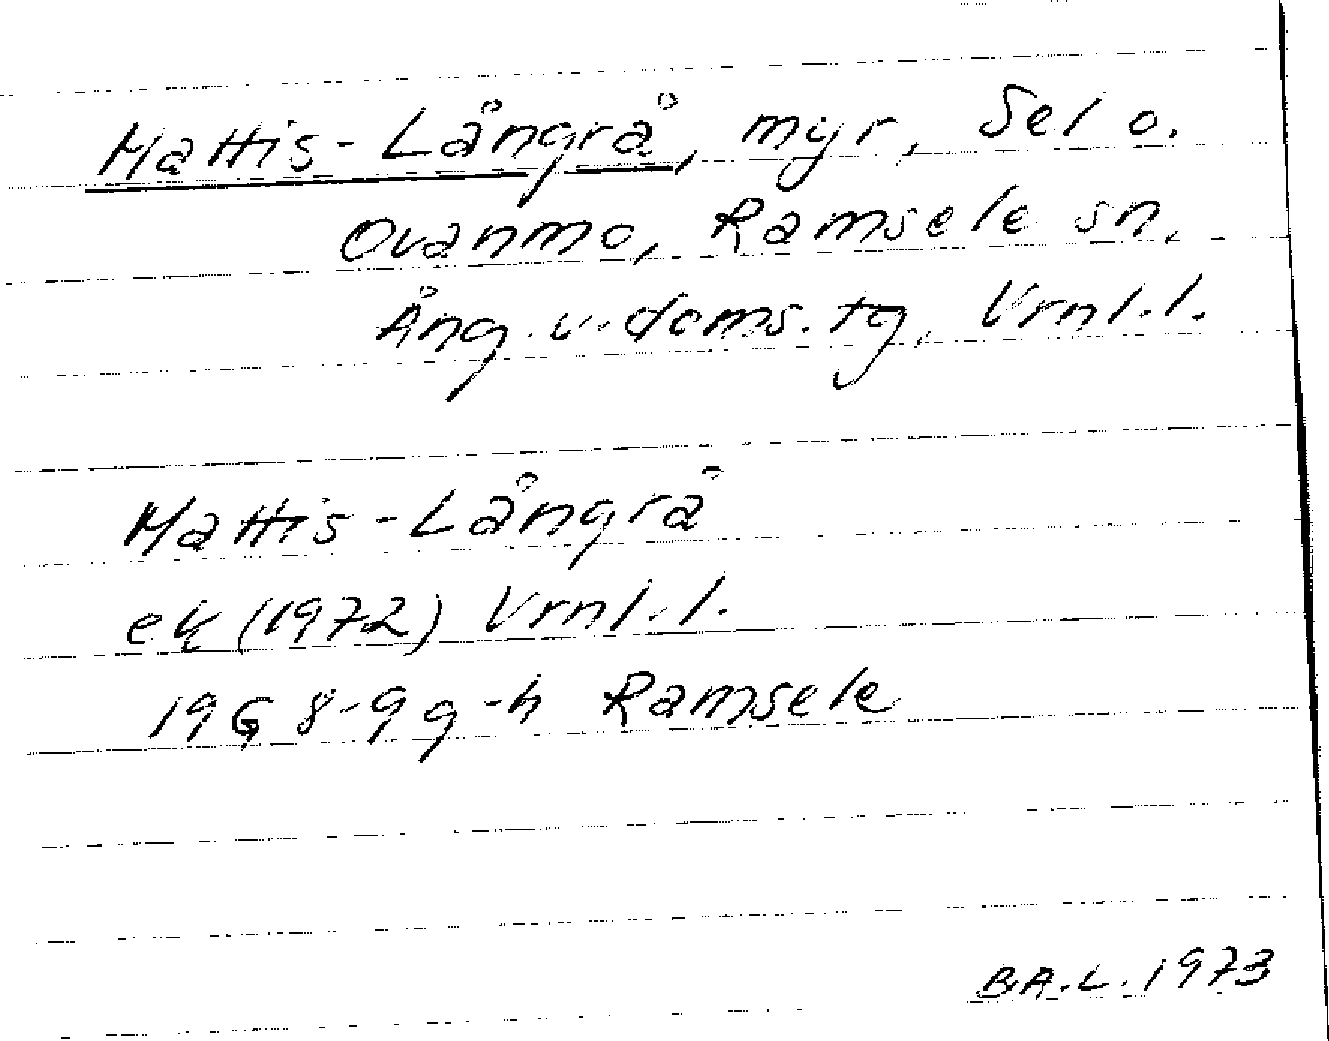 Mattis-Långrå, myr, Sel o.
Ovanmo, Ramsele sn,
Ång. v. doms. tg, Vrnl.l.
Mattis-Långrå
ek (1972) Vrnl.l.
19G 8-9 g-h Ramsele
B.A.L. 1973